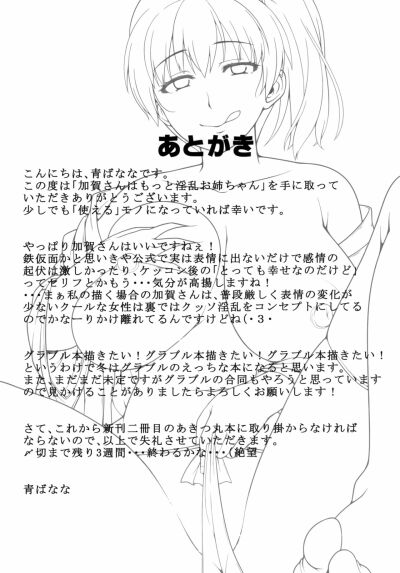 あとがき
こんにちは、青ばななです。
この度は「加賀さんはもっと淫乱お姉ちゃん」を手に取って
いただきありがとうございます。
少しでも「使える」モノになっていれば幸いです。
やっぱり加賀さんはいいですねぇ！
鉄仮面かと思いきや公式で実は表情に出ないだけで感情の
起伏は激しかったり、ケッコン後の「とっても幸せなのだけど」
ってセリフとかもう・・・気分が高揚しますね！
・・・まぁ私の描く場合の加賀さんは、普段厳しく表情の変化が
少ないクールな女性は裏ではクッソ淫乱をコンセプトにしてる
のでかなーりかけ離れてるんですけどね(・３・
グラブル本描きたい！グラブル本描きたい！グラブル本描きたい！
というわけで冬はグラブルのえっちな本になると思います。
また、まだまだ未定ですがグラブルの合同もやろうと思っています
ので見かけることがありましたらよろしくお願いします！
さて、これから新刊二冊目のあきつ丸本に取り掛からなければ
ならないので、以上で失礼させていただきます。
〆切まで残り3週間・・・終わるかな・・・(絶望
青ばなな